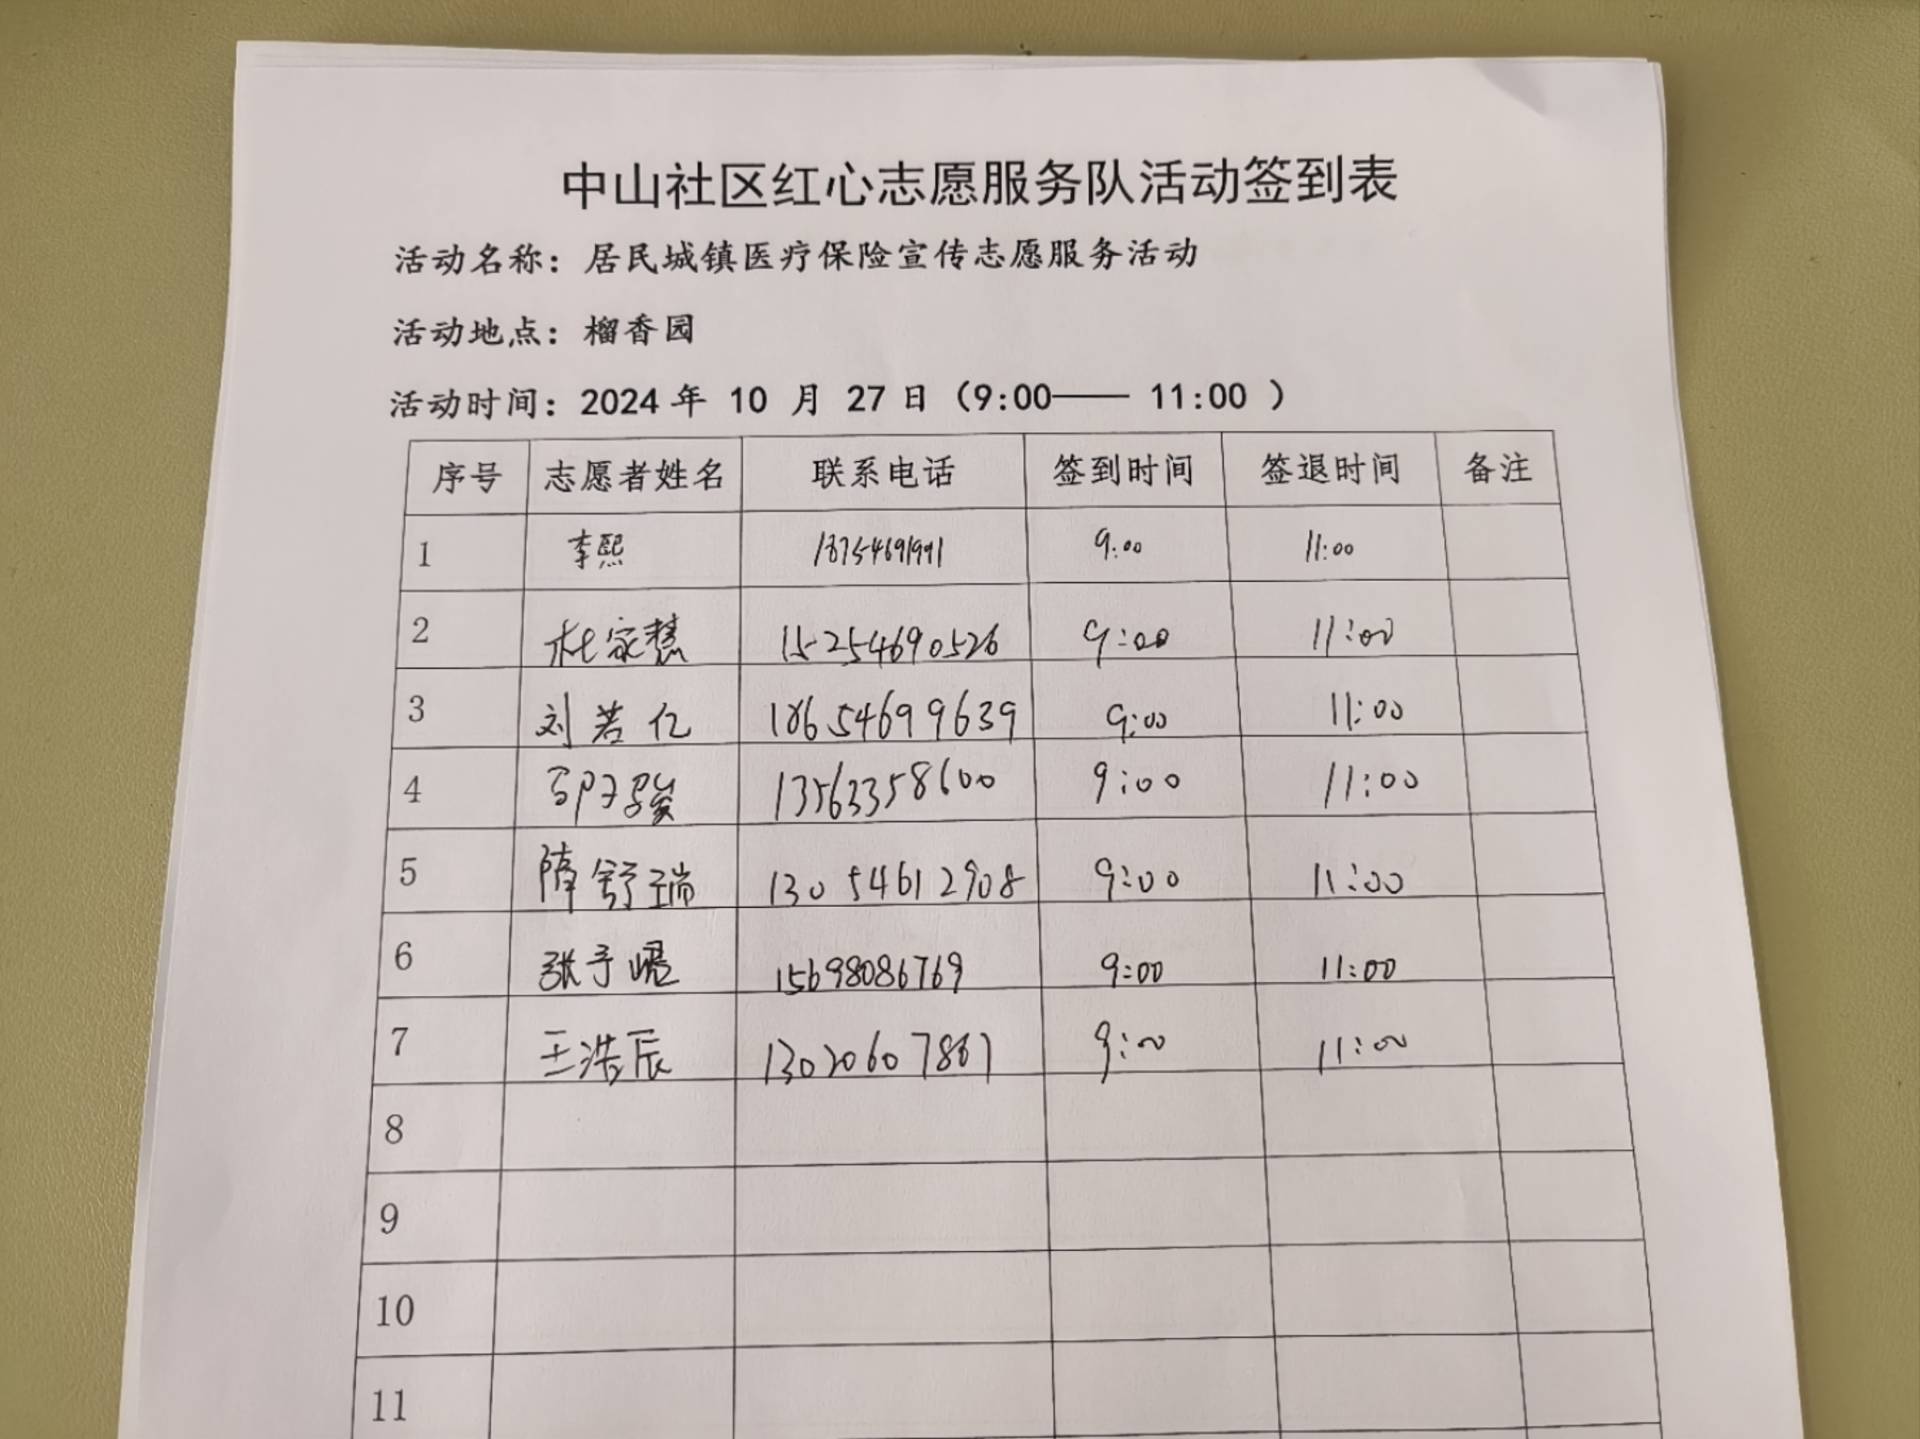 中山社区红心志愿服务队活动签到表
活动名称：居民城镇医疗保险宣传志愿服务活动
活动地点：榴香园
活动时间：2024年 10 月 27日（9:00—— 11:00 ）
序号 志愿者姓名 联系电话 签到时间 签退时间 备注
1 李熙 18754691991 9:00 11:00
2 杜家慧 15254690526 9:00 11:00
3 刘若仁 18654699639 9:00 11:00
4 13563358600 9:00 11:00
5 隋舒瑞 13054612908 9:00 11:00
6 张予曦 15698086769 9:00 11:00
7 王浩辰 13020607867 9:00 11:00
8
9
10
11